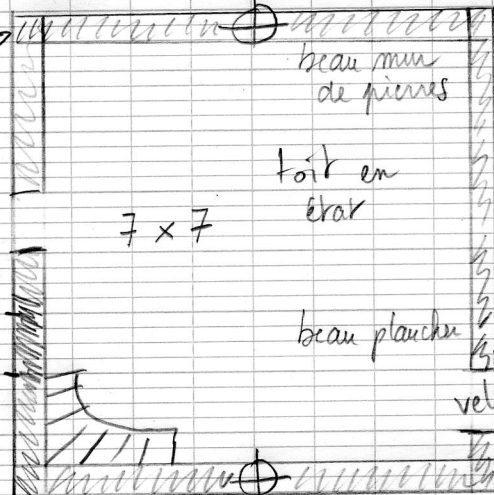 beau mur
de pierres
toit en
état
7 x 7
beau plancher
vel